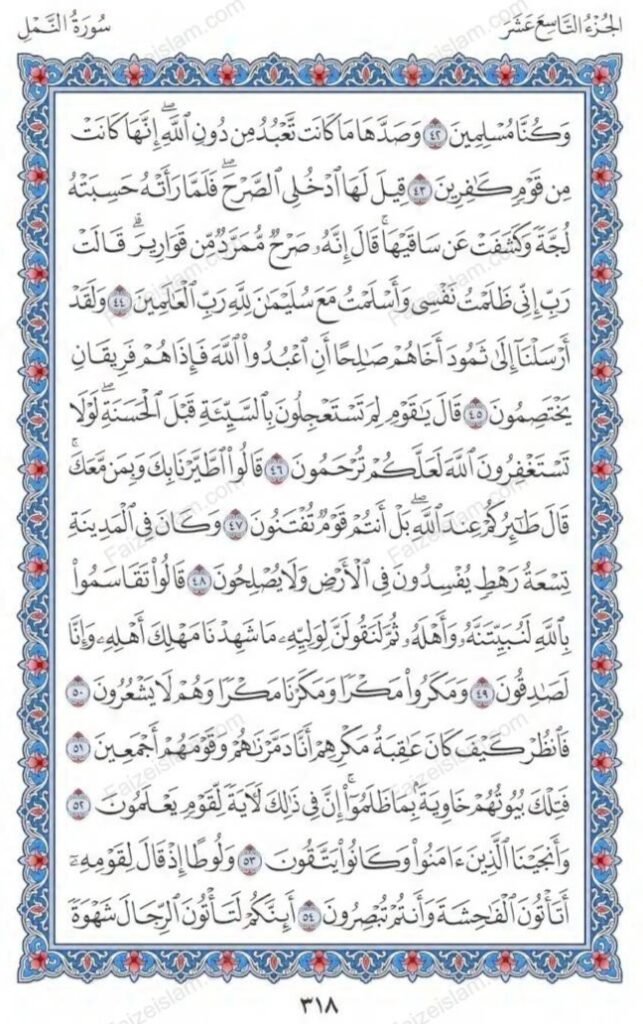 الجُزْءُ التَّاسِعَ عَشَرَ
سُورَةُ النَّمْلِ
وَكُنَّا مُسْلِمِينَ ٤٢ وَصَدَّهَا مَا كَانَت تَّعْبُدُ مِن دُونِ ٱللَّهِۖ إِنَّهَا كَانَتْ
مِن قَوْمٍ كَٰفِرِينَ ٤٣ قِيلَ لَهَا ٱدْخُلِى ٱلصَّرْحَۖ فَلَمَّا رَأَتْهُ حَسِبَتْهُ
لُجَّةً وَكَشَفَتْ عَن سَاقَيْهَاۚ قَالَ إِنَّهُۥ صَرْحٌ مُّمَرَّدٌ مِّن قَوَارِيرَۗ قَالَتْ
رَبِّ إِنِّى ظَلَمْتُ نَفْسِى وَأَسْلَمْتُ مَعَ سُلَيْمَٰنَ لِلَّهِ رَبِّ ٱلْعَٰلَمِينَ ٤٤ وَلَقَدْ
أَرْسَلْنَآ إِلَىٰ ثَمُودَ أَخَاهُمْ صَٰلِحًا أَنِ ٱعْبُدُوا۟ ٱللَّهَ فَإِذَا هُمْ فَرِيقَانِ
يَخْتَصِمُونَ ٤٥ قَالَ يَٰقَوْمِ لِمَ تَسْتَعْجِلُونَ بِٱلسَّيِّئَةِ قَبْلَ ٱلْحَسَنَةِۖ لَوْلَا
تَسْتَغْفِرُونَ ٱللَّهَ لَعَلَّكُمْ تُرْحَمُونَ ٤٦ قَالُوا۟ ٱطَّيَّرْنَا بِكَ وَبِمَن مَّعَكَۚ
قَالَ طَٰٓئِرُكُمْ عِندَ ٱللَّهِۖ بَلْ أَنتُمْ قَوْمٌ تُفْتَنُونَ ٤٧ وَكَانَ فِى ٱلْمَدِينَةِ
تِسْعَةُ رَهْطٍ يُفْسِدُونَ فِى ٱلْأَرْضِ وَلَا يُصْلِحُونَ ٤٨ قَالُوا۟ تَقَاسَمُوا۟
بِٱللَّهِ لَنُبَيِّتَنَّهُۥ وَأَهْلَهُۥ ثُمَّ لَنَقُولَنَّ لِوَلِيِّهِۦ مَا شَهِدْنَا مَهْلِكَ أَهْلِهِۦ وَإِنَّا
لَصَٰدِقُونَ ٤٩ وَمَكَرُوا۟ مَكْرًا وَمَكَرْنَا مَكْرًا وَهُمْ لَا يَشْعُرُونَ ٥٠
فَٱنظُرْ كَيْفَ كَانَ عَٰقِبَةُ مَكْرِهِمْ أَنَّا دَمَّرْنَٰهُمْ وَقَوْمَهُمْ أَجْمَعِينَ ٥١
فَتِلْكَ بُيُوتُهُمْ خَاوِيَةًۢ بِمَا ظَلَمُوٓا۟ۚ إِنَّ فِى ذَٰلِكَ لَءَايَةً لِّقَوْمٍ يَعْلَمُونَ ٥٢
وَأَنجَيْنَا ٱلَّذِينَ ءَامَنُوا۟ وَكَانُوا۟ يَتَّقُونَ ٥٣ وَلُوطًا إِذْ قَالَ لِقَوْمِهِۦٓ
أَتَأْتُونَ ٱلْفَٰحِشَةَ وَأَنتُمْ تُبْصِرُونَ ٥٤ أَئِنَّكُمْ لَتَأْتُونَ ٱلرِّجَالَ شَهْوَةً
٣١٨
Faizeislam.com